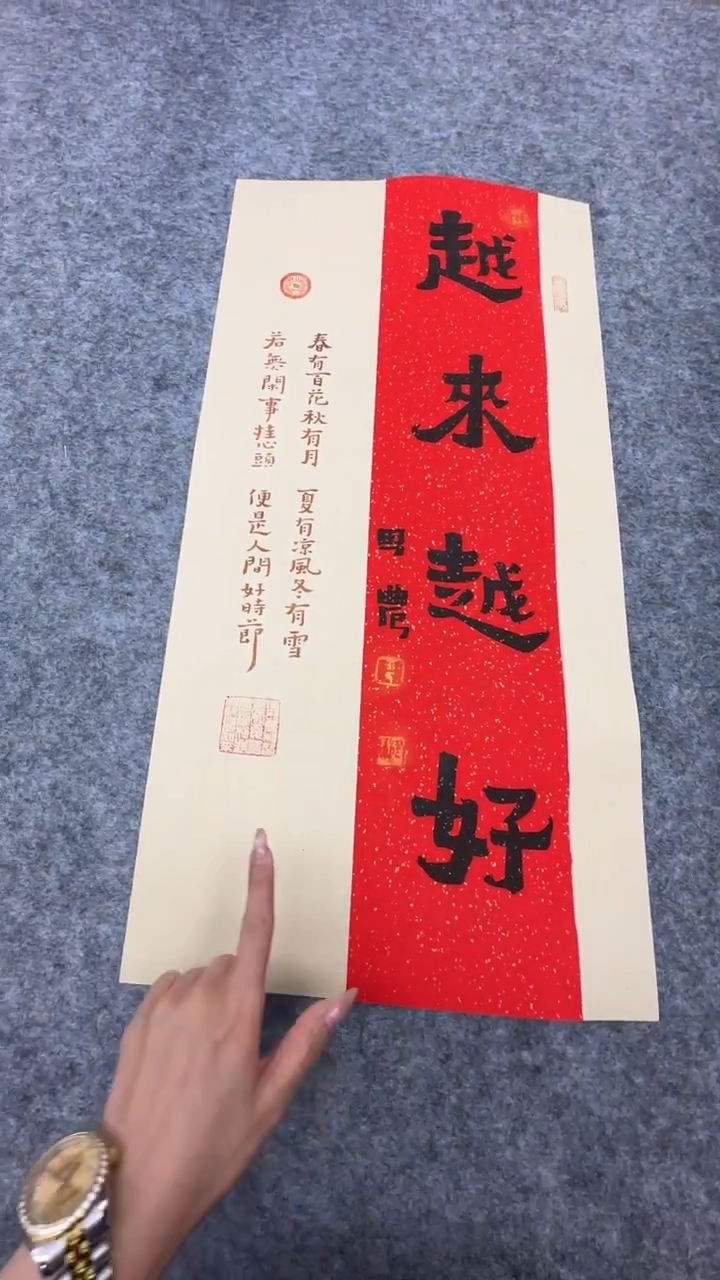 越來越好
田農
春有百花秋有月 夏有凉風冬有雪
若無閑事挂心頭 便是人間好時節